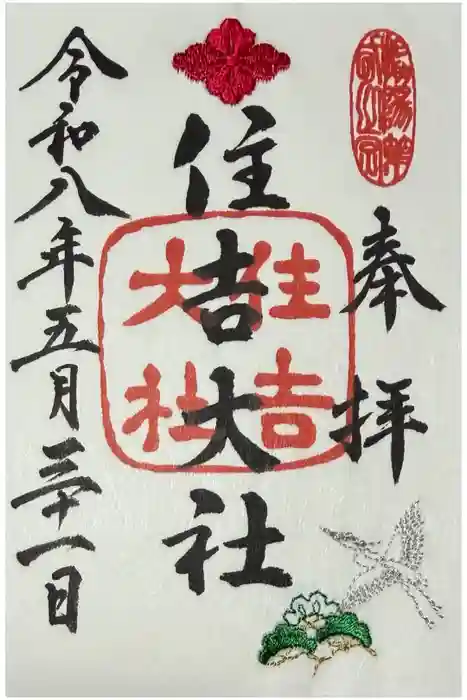 奉拝
住吉大社
住吉大社
令和八年五月三十一日